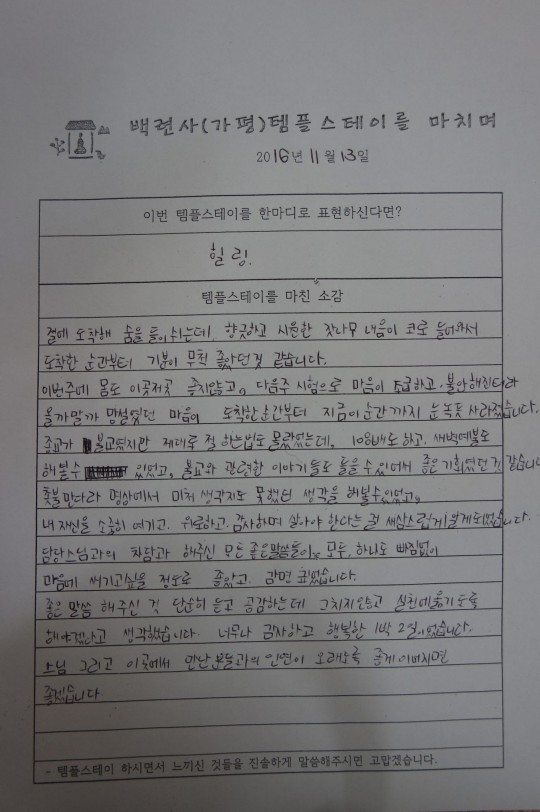 백련사(가평)템플스테이를 마치며
2016년 11월 13일
이번 템플스테이를 한마디로 표현하신다면?
힐링.
템플스테이를 마친 소감
절에 도착해 숨을 들이쉬는데, 향긋하고 시원한 잣나무 내음이 코로 들어와서
도착한 순간부터 기분이 무척 좋았던것 같습니다.
이번주에 몸도 이곳저곳 좋지않고, 다음주 시험으로 마음이 조급하고 불안해진터라
올까말까 망설였던 마음이 도착한순간부터 지금이순간까지 눈녹듯 사라졌습니다.
종교가 불교였지만 제대로 절 하는법도 몰랐었는데, 108배도 하고, 새벽예불도
해볼수 있었고, 불교와 관련한 이야기들도 들을 수 있어서 좋은 기회였던것 같습니다
촛불만다라 명상에서 미처 생각지도 못했던 생각을 해볼수있었고,
내 자신을 소중히 여기고, 위로하고, 감사하며 살아야 한다는걸 새삼스럽게 알게되었습니다.
담당스님과의 차담과 해주신 모든 좋은말씀들이 모두, 하나도 빠짐없이
마음에 새기고싶을 정도로 좋았고, 감명 깊었습니다.
좋은 말씀 해주신 것 단순히 듣고 공감하는데 그치지않고 실천에옮기도록
해야겠다고 생각했습니다. 너무나 감사하고 행복한 1박 2일이었습니다.
스님 그리고 이곳에서 만난분들과의 인연이 오래도록 좋게이어지면
좋겠습니다
- 템플스테이 하시면서 느끼신 것들을 진솔하게 말씀해주시면 고맙겠습니다.